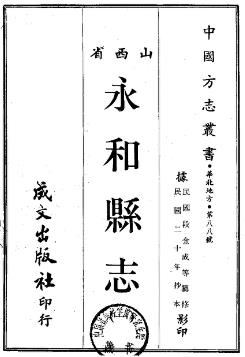 中國方志叢書・華北地方・第八八號
據民國段金成等纂修
民國二十年鈔本影印
山西省
永和縣志
成文出版社印行